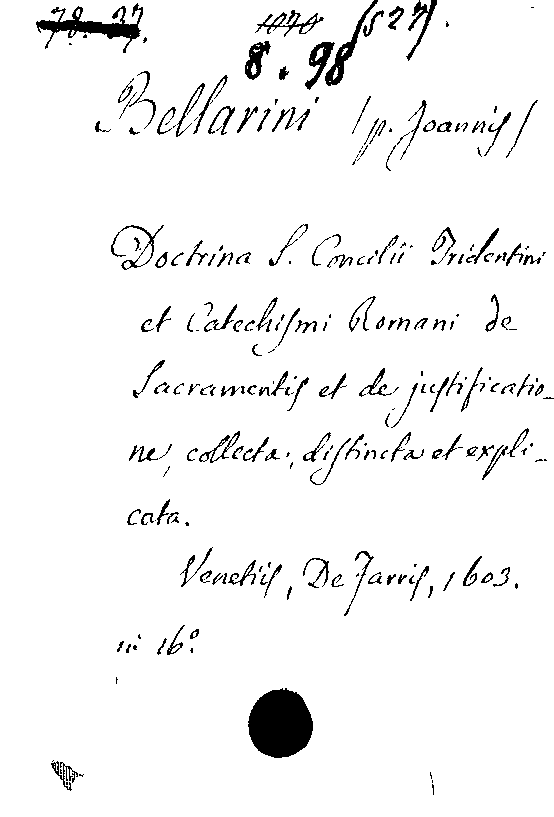 78. 37. 1070 (527).
8. 98
Bellarini (p. Joannis)
Doctrina S. Concilii Tridentini
et Catechismi Romani de
Sacramentis et de justificatio_
ne, collecta, distincta et expli_
cata.
Venetiis, De Farris, 1603.
in 16º